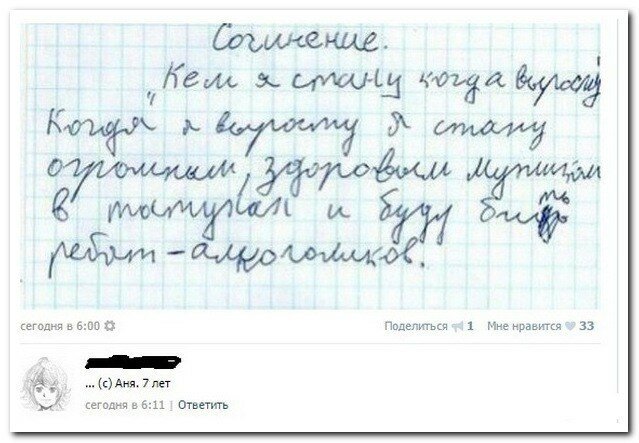 Сочинение.
"Кем я стану когда вырасту
Когдя я выросту я стану
огромным, здоровым мужиком
в татухах и буду бить
ребят-алкоголиков.
сегодня в 6:00
Поделиться 1 Мне нравится 33
... (с) Аня. 7 лет
сегодня в 6:11 | Ответить